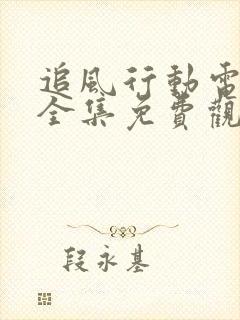 追風行動電
全集免費觀
段永基